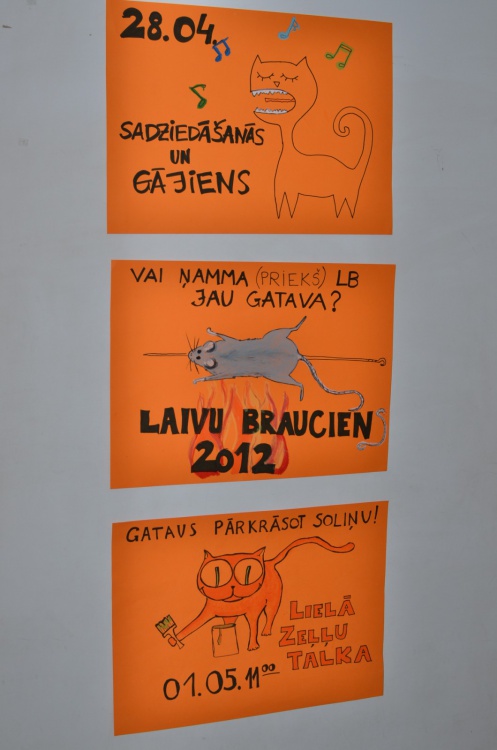 28.04.
SADZIEDĀŠANĀS
UN
GĀJIENS
VAI ŅAMMA (PRIEKŠ) LB
JAU GATAVA?
LAIVU BRAUCIEN
2012
GATAVS PĀRKRĀSOT SOLIŅU!
LIELĀ
ZEĻĻU
TALKA
01.05. 11⁰⁰